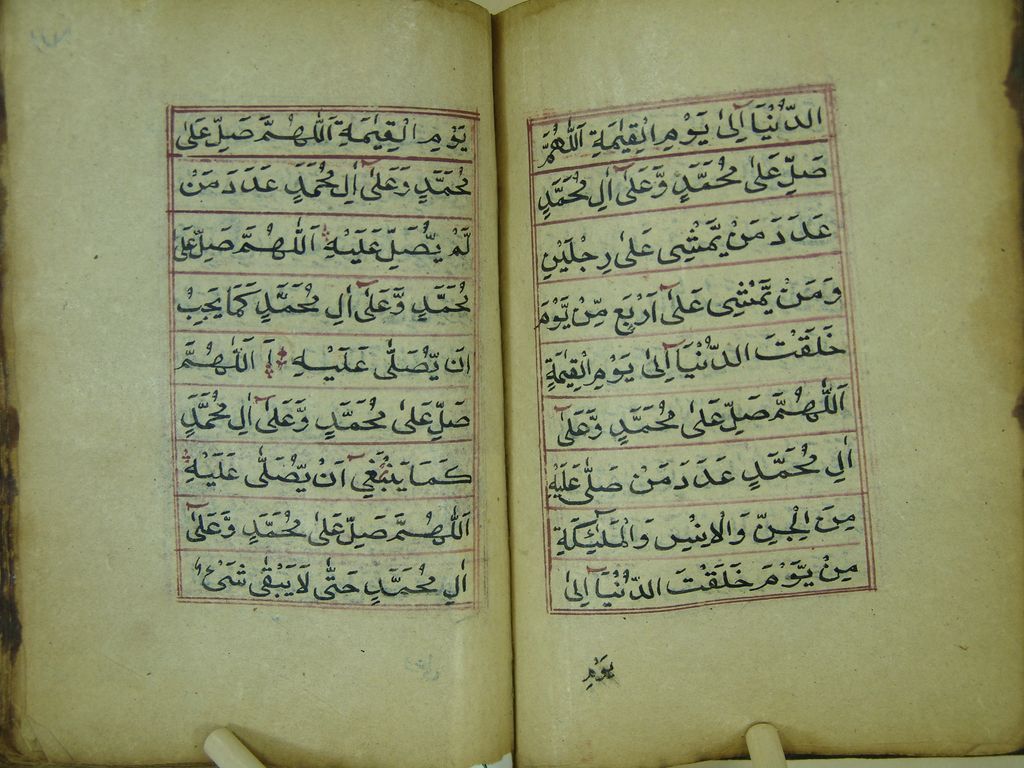 الدُّنْيَآ اِلىٰ يَوْمِ الْقِيٰمَةِ اَللّٰهُمَّ
صَلِّ عَلىٰ مُحَمَّدٍ وَّعَلىٰٓ اٰلِ مُحَمَّدٍ
عَدَدَ مَنْ يَّمْشِى عَلىٰ رِجْلَيْنِ
وَمَنْ يَّمْشِى عَلىٰٓ اَرْبَعٍ مِّنْ يَّوْمَ
خَلَقْتَ الدُّنْيَآ اِلىٰ يَوْمِ الْقِيٰمَةِ
اَللّٰهُمَّ صَلِّ عَلىٰ مُحَمَّدٍ وَّعَلىٰٓ
اٰلِ مُحَمَّدٍ عَدَدَ مَنْ صَلّٰى عَلَيْهِ
مِنَ الْجِنِّ وَالْاِنْسِ وَالْمَلٰٓئِكَةِ
مِنْ يَّوْمَ خَلَقْتَ الدُّنْيَآ اِلىٰ
يَوْمِ
يَوْمِ الْقِيٰمَةِ اَللّٰهُمَّ صَلِّ عَلىٰ
مُحَمَّدٍ وَّعَلىٰٓ اٰلِ مُحَمَّدٍ عَدَدَ مَنْ
لَّمْ يُّصَلِّ عَلَيْهِ اَللّٰهُمَّ صَلِّ عَلىٰ
مُحَمَّدٍ وَّعَلىٰٓ اٰلِ مُحَمَّدٍ كَمَا يَجِبُ
اَنْ يُّصَلّٰى عَلَيْهِ اَللّٰهُمَّ
صَلِّ عَلىٰ مُحَمَّدٍ وَّعَلىٰٓ اٰلِ مُحَمَّدٍ
كَمَا يَنْبَغِىْ اَنْ يُّصَلّٰى عَلَيْهِ
اَللّٰهُمَّ صَلِّ عَلىٰ مُحَمَّدٍ وَّعَلىٰٓ
اٰلِ مُحَمَّدٍ حَتّٰى لَا يَبْقٰى شَىْءٌ